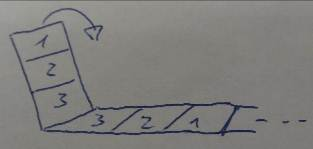 1
2
3
3 2 1